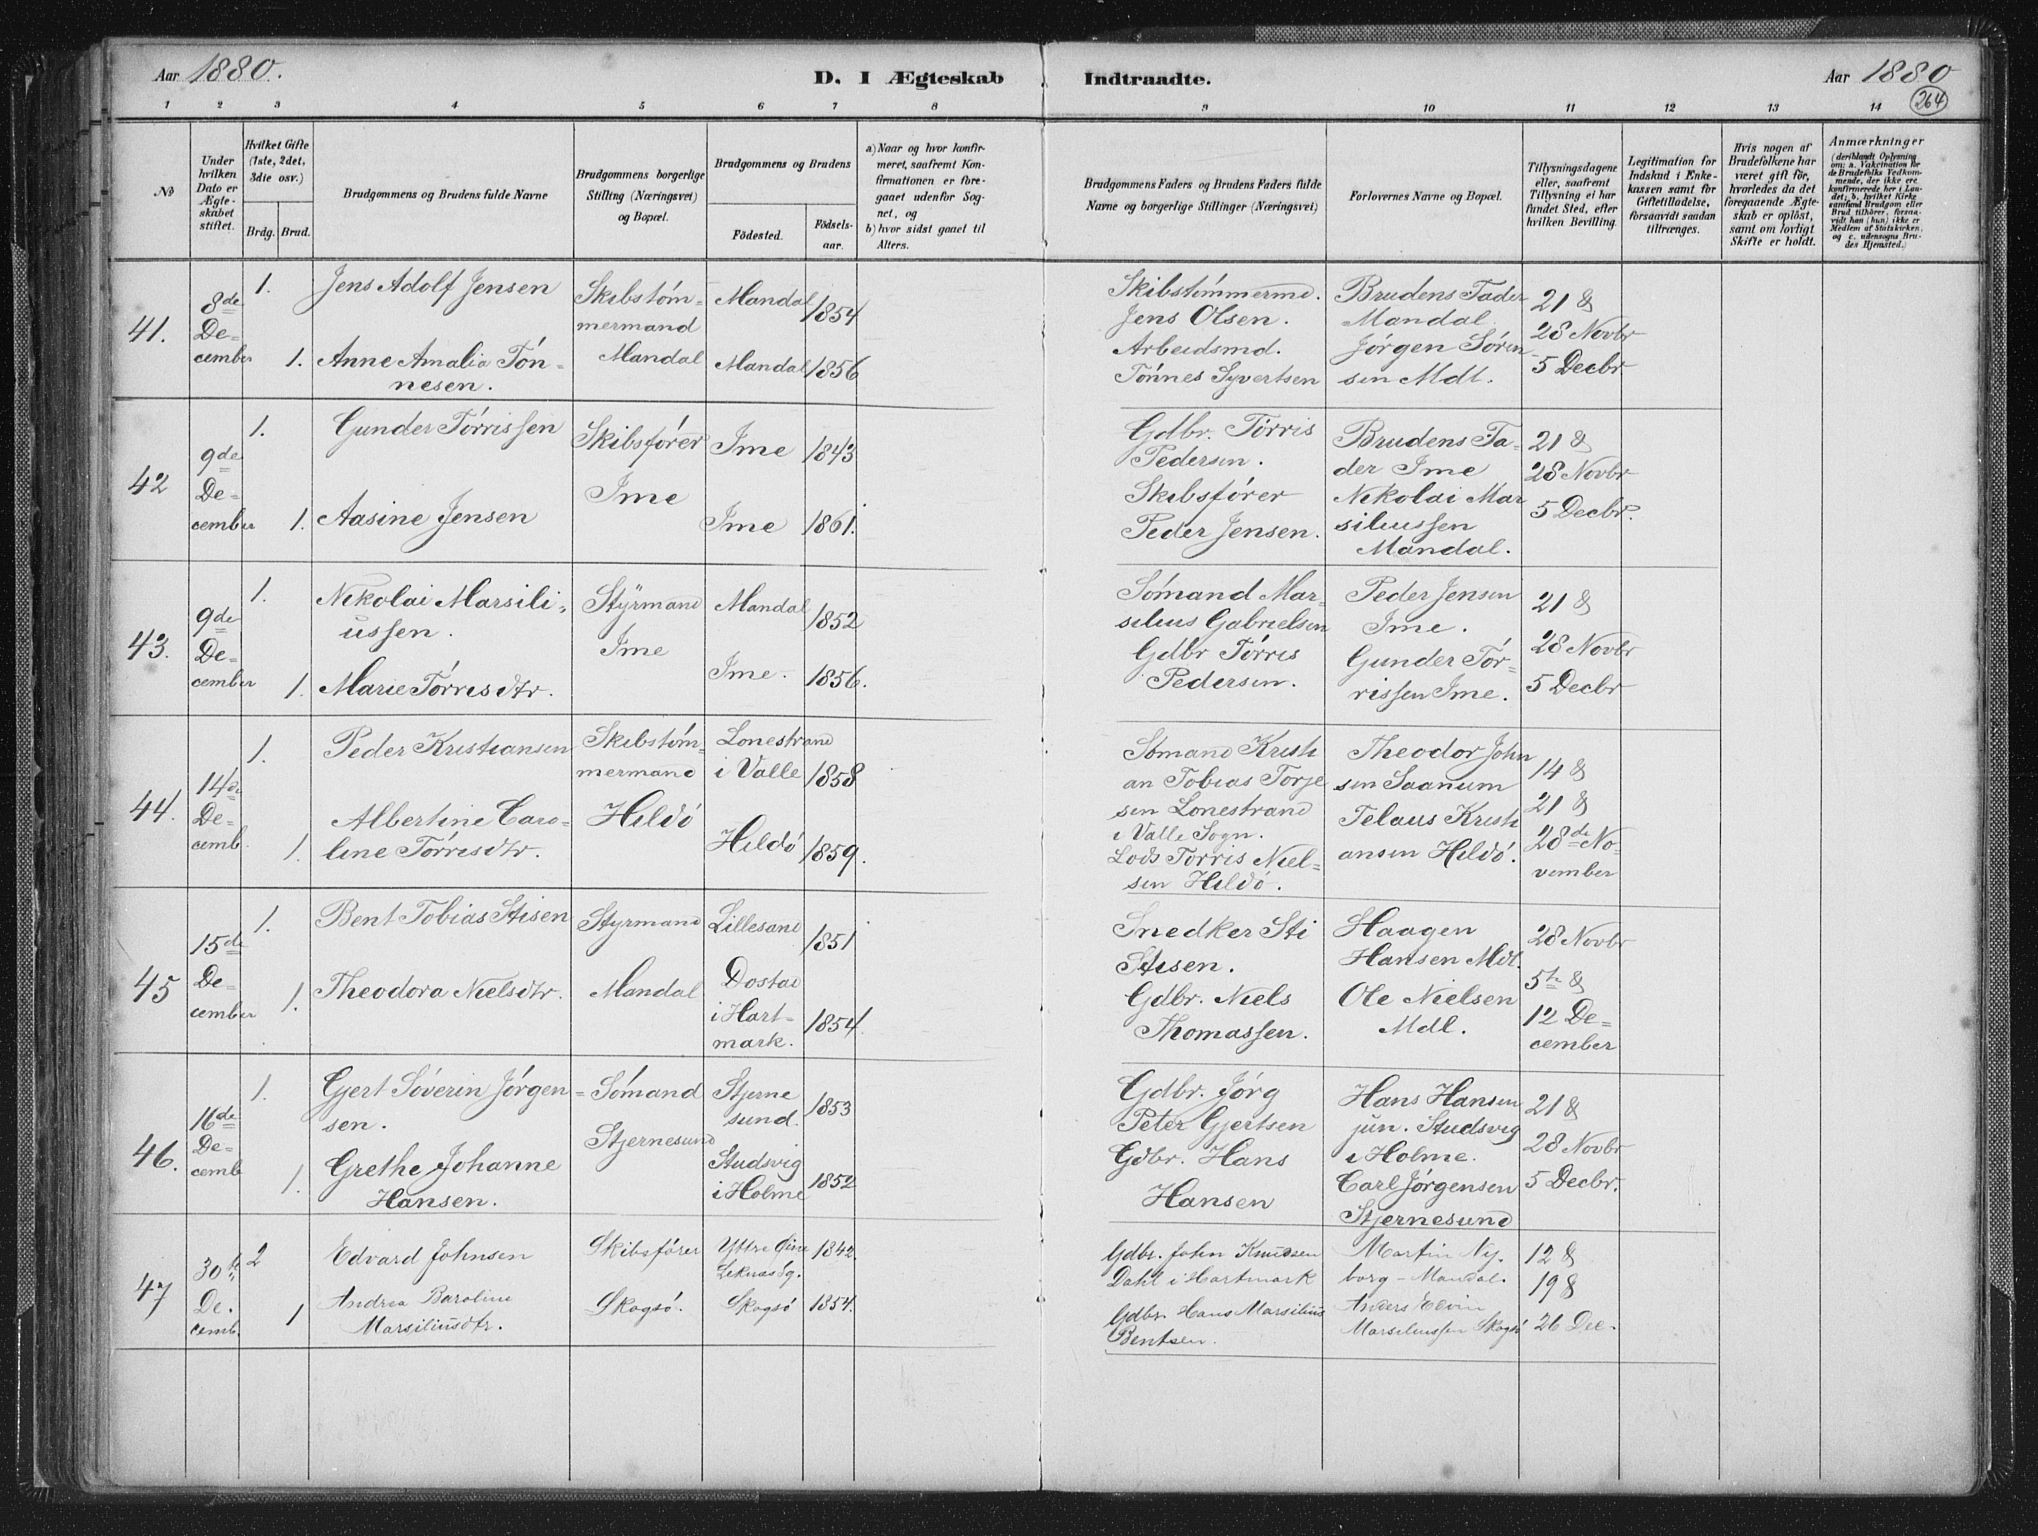 Aar 1880.
D. I Ægteskab Indtraadte.
Aar 1880
264
1 2 3 4 5 6 7 8 9 10 11 12 13 14
No
Under hvilken Dato er Ægteskabet stiftet.
Hvilket Gifte (1ste, 2det, 3die osv.)
Brdg. Brud.
Brudgommens og Brudens fulde Navne
Brudgommens borgerlige Stilling (Næringsvei) og Bopæl.
Brudgommens og Brudens
Födested. Födselsaar.
a) Naar og hvor konfirmeret, saafremt Konfirmationen er foregaaet udenfor Sognet, og
b) hvor sidst gaaet til Alters.
Brudgommens Faders og Brudens Faders fulde Navne og borgerlige Stillinger (Næringsvei)
Forlovernes Navne og Bopæl.
Tillysningsdagene eller, saafremt Tillysning ei har fundet Sted, efter hvilken Bevilling.
Legitimation for Indskud i Enkekassen samt for Giftetilladelse, forsaavidt saadan tiltrænges.
Hvis nogen af Brudefolkene har været gift för, hvorledes da det foregaaende Ægteskab er oplöst, samt om lovligt Skifte er holdt.
Anmærkninger
(deriblandt Oplysning om: a. Vakcination for de Brudefolks Vedkommende, der ikke ere konfirmerede her i Landet; b. hvilket Kirkesamfund Brudgom eller Brud tilhörer, forsaavidt han (hun) ikke er Medlem af Statskirken, og c. udensogns Brudes Hjemsted.)
41.
8de December
1.
Jens Adolf Jensen
1.
Anne Amalia Tönnesen.
Skibstömmermand
Mandal
Mandal 1854
Mandal 1856
Skibstömmermd.
Jens Olsen.
Arbeidsmd.
Tönnes Syvertsen
Brudens Fader
Mandal
Jörgen Sörensen Mdl.
21 &
28 Novbr
5 Decbr
42
9de December
1.
Gunder Törrissen
1.
Aasine Jensen
Skibsförer
Ime
Ime 1843
Ime 1861.
Gdbr. Törris
Pedersen.
Skibsförer
Peder Jensen.
Brudens Fader Ime
Nikolai Marsiliussen
Mandal.
21 &
28 Novbr
5 Decbr.
43.
9de December
1.
Nikolai Marsiliussen.
1.
Marie Törrisdtr.
Styrmand
Ime
Mandal 1852
Ime. 1856.
Sömand Marsilius Gabrielsen
Gdbr Törris
Pedersen.
Peder Jensen
Ime.
Gunder Törrissen Ime.
21 &
28 Novbr
5 Decbr
44.
14de Decemb.
1.
Peder Kristiansen
1.
Albertine Caroline Törrisdtr.
Skibstömmermand
Hildö
Lonestrand
i Valle 1858
Hildö 1859.
Sömand Kristian Tobias Torjesen Lonestrand
i Valle Sogn.
Lods Törris Nielsen Hildö.
Theodor Johnsen Saanum
Telaus Kristiansen Hildö.
14 &
21 &
28de November
45
15de December
1.
Bent Tobias Stisen
1.
Theodora Nielsdtr.
Styrmand
Mandal
Lillesand 1851
Dostad
i Hartmark. 1854.
Snedker Sti
Stisen.
Gdbr. Niels
Thomassen.
Haagen
Hansen Mdl.
Ole Nielsen
Mdl.
28 Novbr
5te &
12 December
46.
16de Decemb
1.
Gjert Söverin Jörgensen.
1.
Grethe Johanne
Hansen.
Sömand
Stjernesund
Stjernesund. 1853
Studsvig
i Holme 1852
Gdbr. Jörg
Peter Gjertsen
Gdbr. Hans
Hansen
Hans Hansen
jun. Studsvig
i Holme.
Carl Jörgensen
Stjernesund
21 &
28 Novbr
5 Decbr.
47
30te Decemb.
2
Edvard Johnsen
1
Andrea Baroline
Marsiliusdtr.
Skibsförer
Skogsö.
Yttre Öine 1842.
Skogsö 1854.
Gdbr. John Knudsen
Dahl i Hartmark
Gdbr. Hans Marsilius
Bentsen.
Martin Nyborg - Mandal.
Anders Edvin
Marsiliussen Skogsö
12 &
19 &
26 Dec.